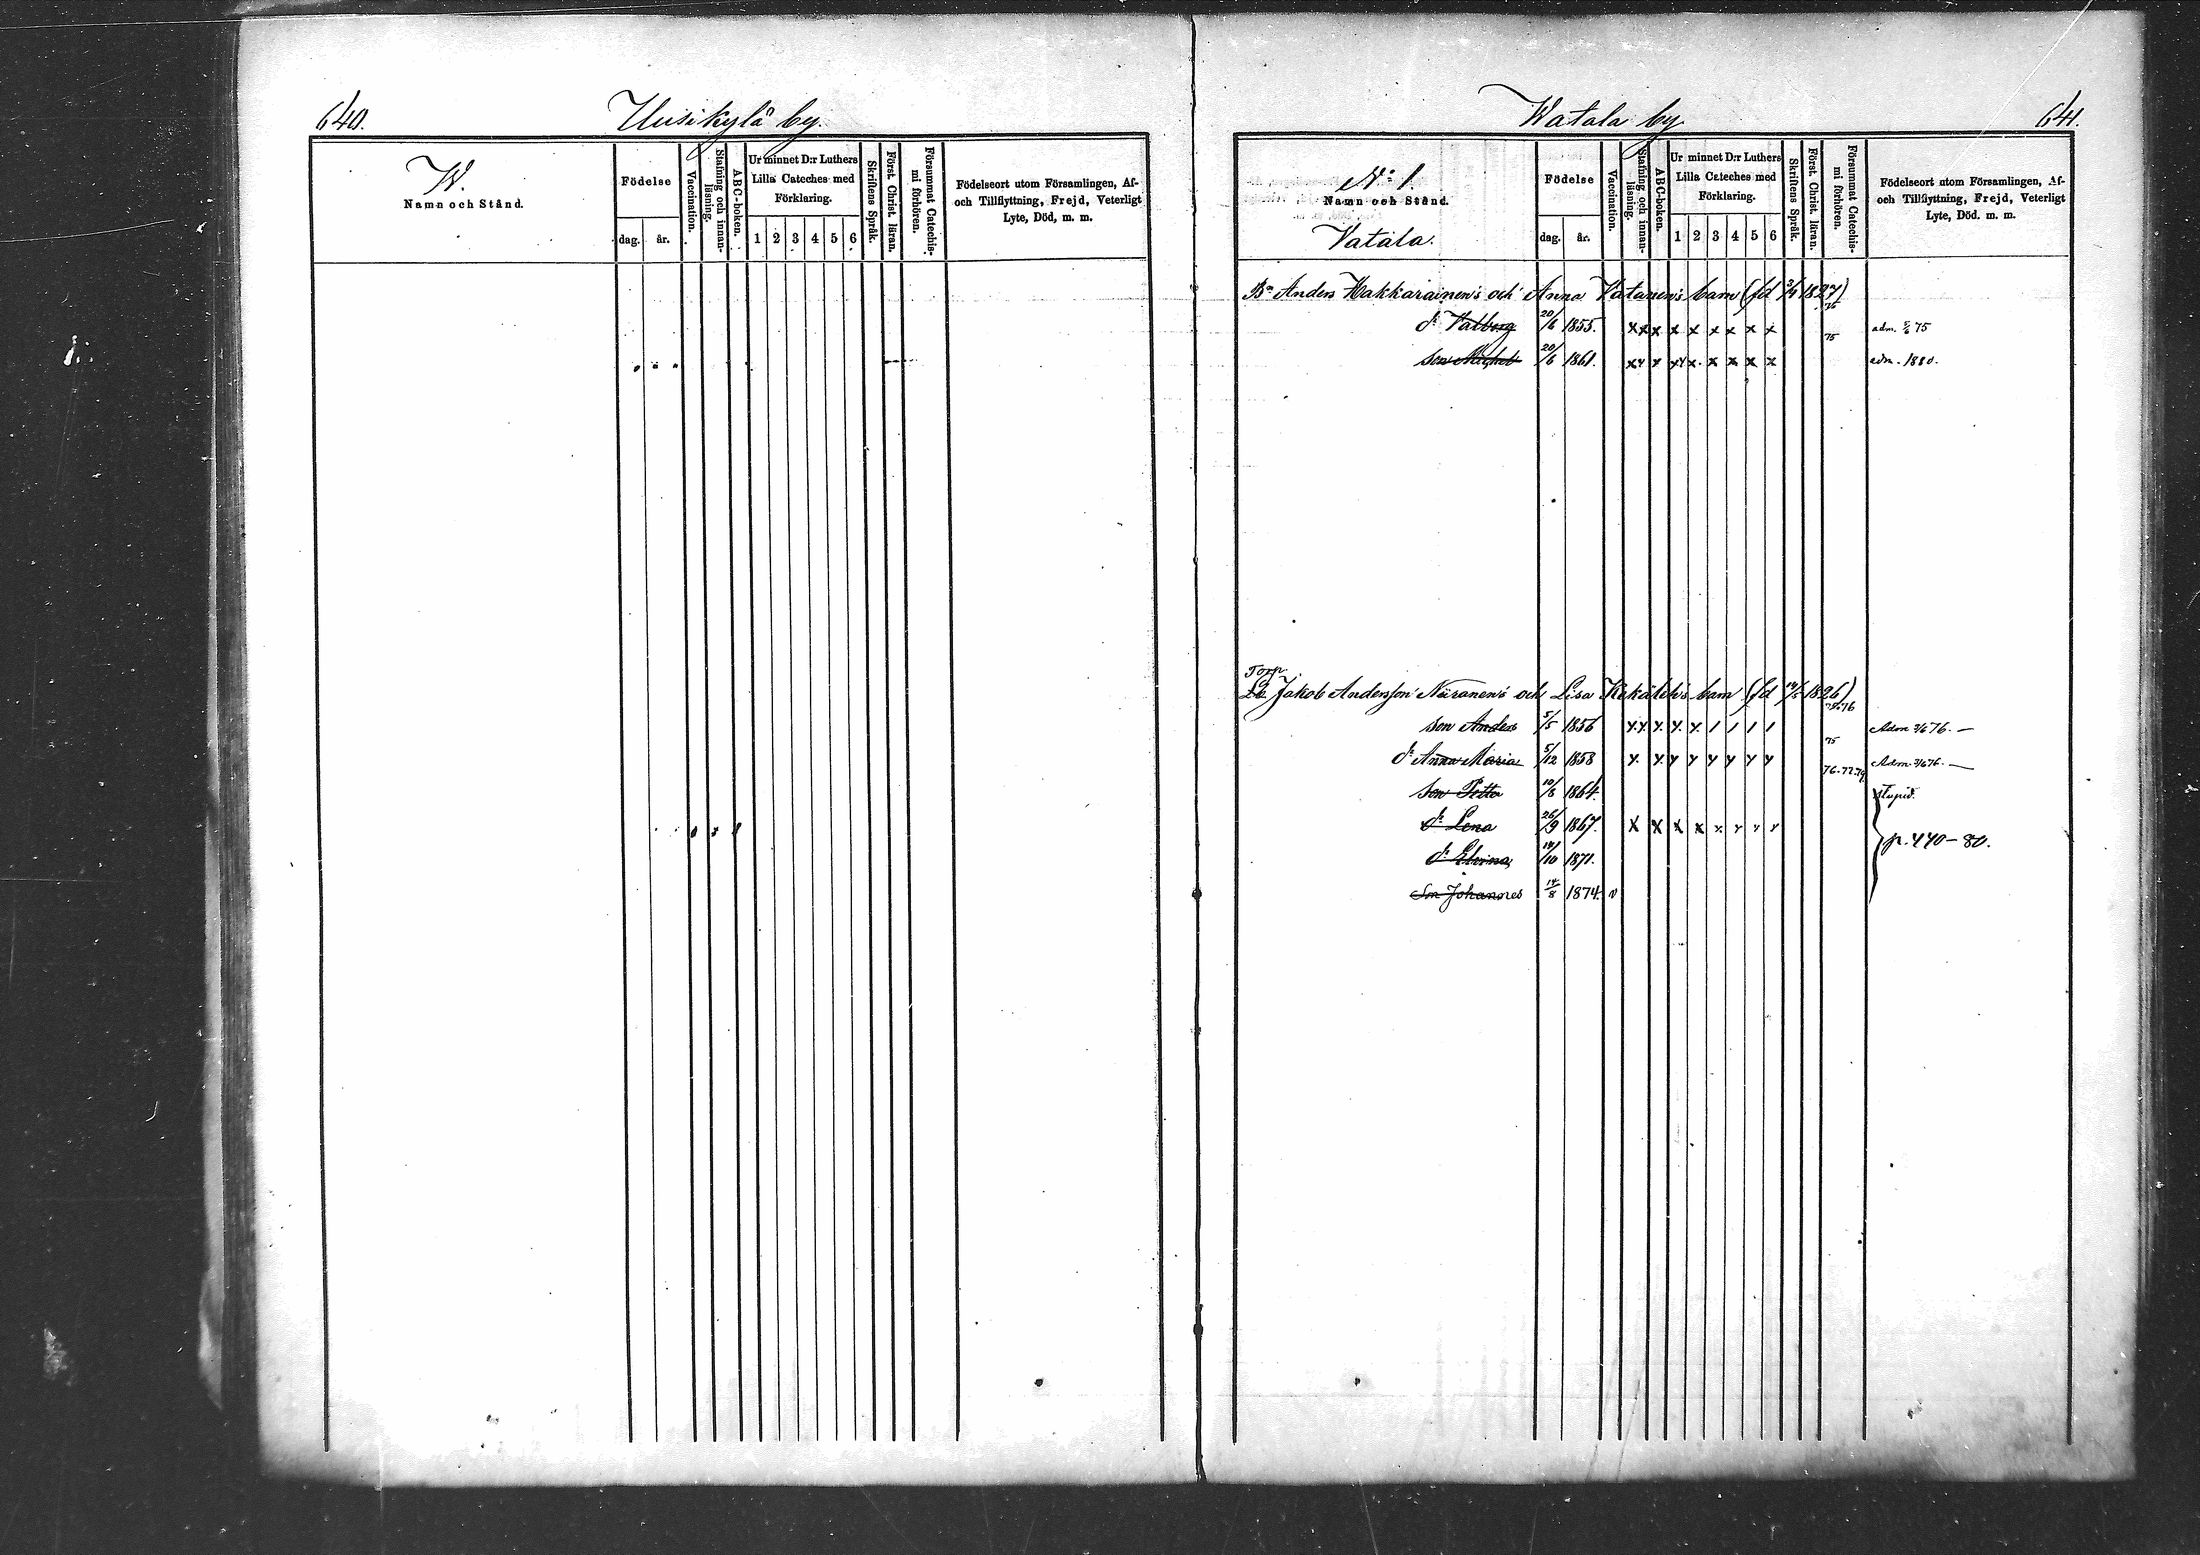 640.
Uusikylä by.
W.
Namn och Stånd.
Födelse
dag. år.
Vaccination.
Stafning och innan-
läsning.
ABC-boken.
Ur minnet D:r Luthers
Lilla Cateches med
Förklaring.
1 2 3 4 5 6
Skriftens Språk.
Först. Christ. läran.
Försummat Catechis-
mi förhören.
Födelseort utom Församlingen, Af-
och Tillflyttning, Frejd, Veterligt
Lyte, Död, m. m.
Watala by
641.
N:o 1.
Namn och Stånd.
Vatala.
Födelse
dag. år.
Vaccination.
Stafning och innan-
läsning.
ABC-boken.
Ur minnet D:r Luthers
Lilla Cateches med
Förklaring.
1 2 3 4 5 6
Skriftens Språk.
Först. Christ. läran.
Försummat Catechis-
mi förhören.
Födelseort utom Församlingen, Af-
och Tillflyttning, Frejd, Veterligt
Lyte, Död. m. m.
Bn Anders Hakkarainen's och Anna Vatanen's barn (fd 3/9 1827)
75
dr Valborg 20/6 1855. x x x x x x x x x adm. 75
75
son Michel 20/6 1861. x x x x x x x x x adm. 1880.
Torp.
Jakob Andersson Näränen's och Lisa barn (fd 14/5 1826)
75.76
son Anders 5/5 1856 x x x x x / / / / Adm 76. —
75
dr Anna Maria 5/12 1858 x x x x x x x x Adm 76. —
76.77.79
son Petter 10/8 1864. stupid.
dr Lena 26/9 1867. x x x x x x x x
p. 440-80.
dr Elvina 14/10 1871.
son Johannes 14/8 1874. v